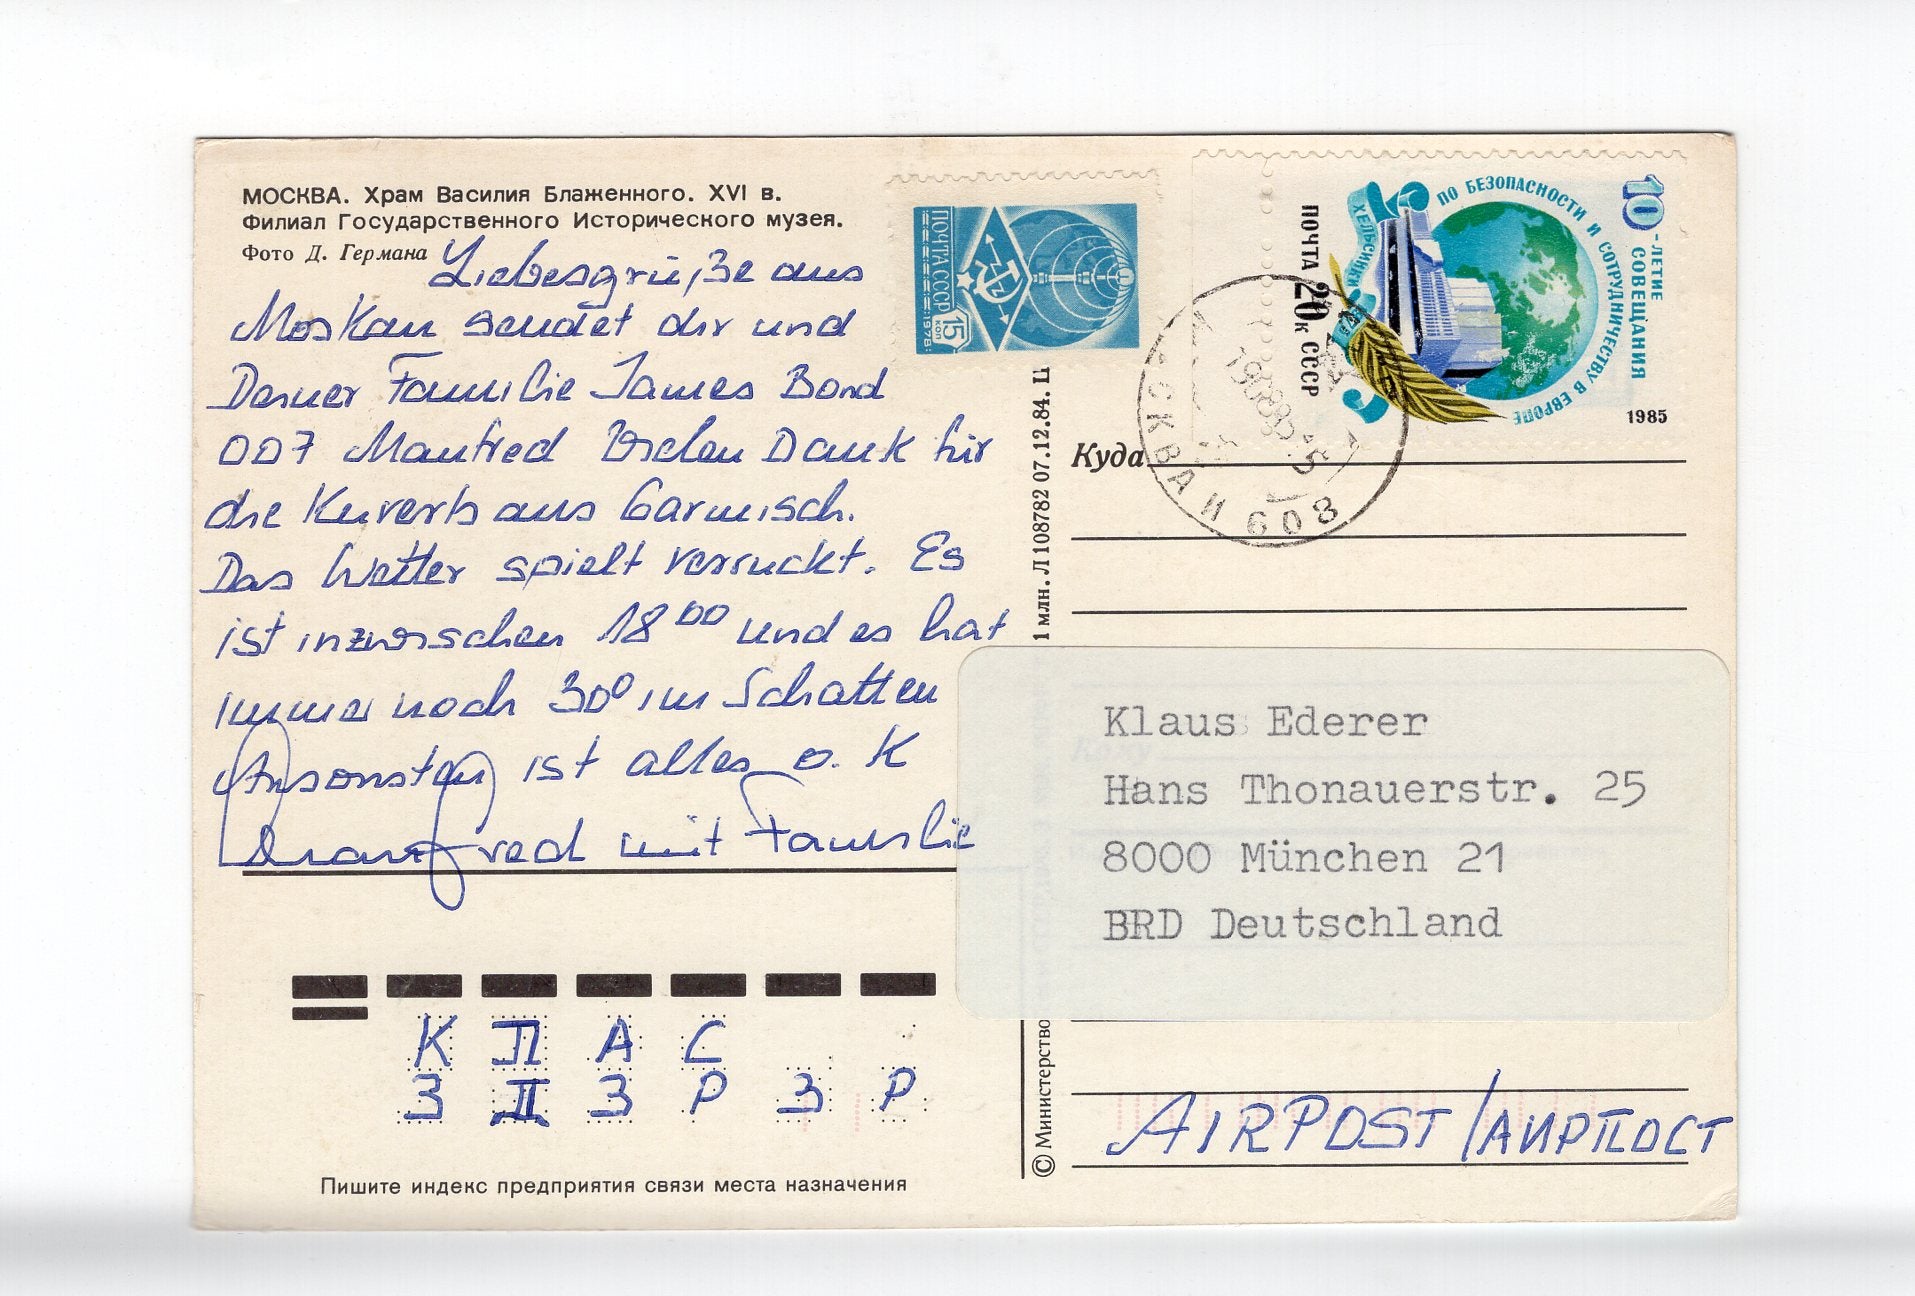 МОСКВА. Храм Василия Блаженного. XVI в.
Филиал Государственного Исторического музея.
Фото Д. Германа
Liebesgrüße aus
Moskau sendet dir und
Deiner Familie James Bond
007 Manfred Vielen Dank für
die Kuverts aus Garmisch.
Das Wetter spielt verrückt. Es
ist inzwischen 18 00 und es hat
immer noch 30° im Schatten
Ansonsten ist alles o. K
Manfred mit Familie
К П А С
З П З Р З Р
Пишите индекс предприятия связи места назначения
1 млн. Л 108782 07.12.84. Ц
© Министерство
ПОЧТА СССР
15 коп
1978
10-ЛЕТИЕ СОВЕЩАНИЯ
ПО БЕЗОПАСНОСТИ И СОТРУДНИЧЕСТВУ В ЕВРОПЕ
ХЕЛЬСИНКИ
ПОЧТА 20к СССР
1985
МОСКВА И 608
Куда
Кому
Klaus Ederer
Hans Thonauerstr. 25
8000 München 21
BRD Deutschland
AIRPOST/АИРПОСТ